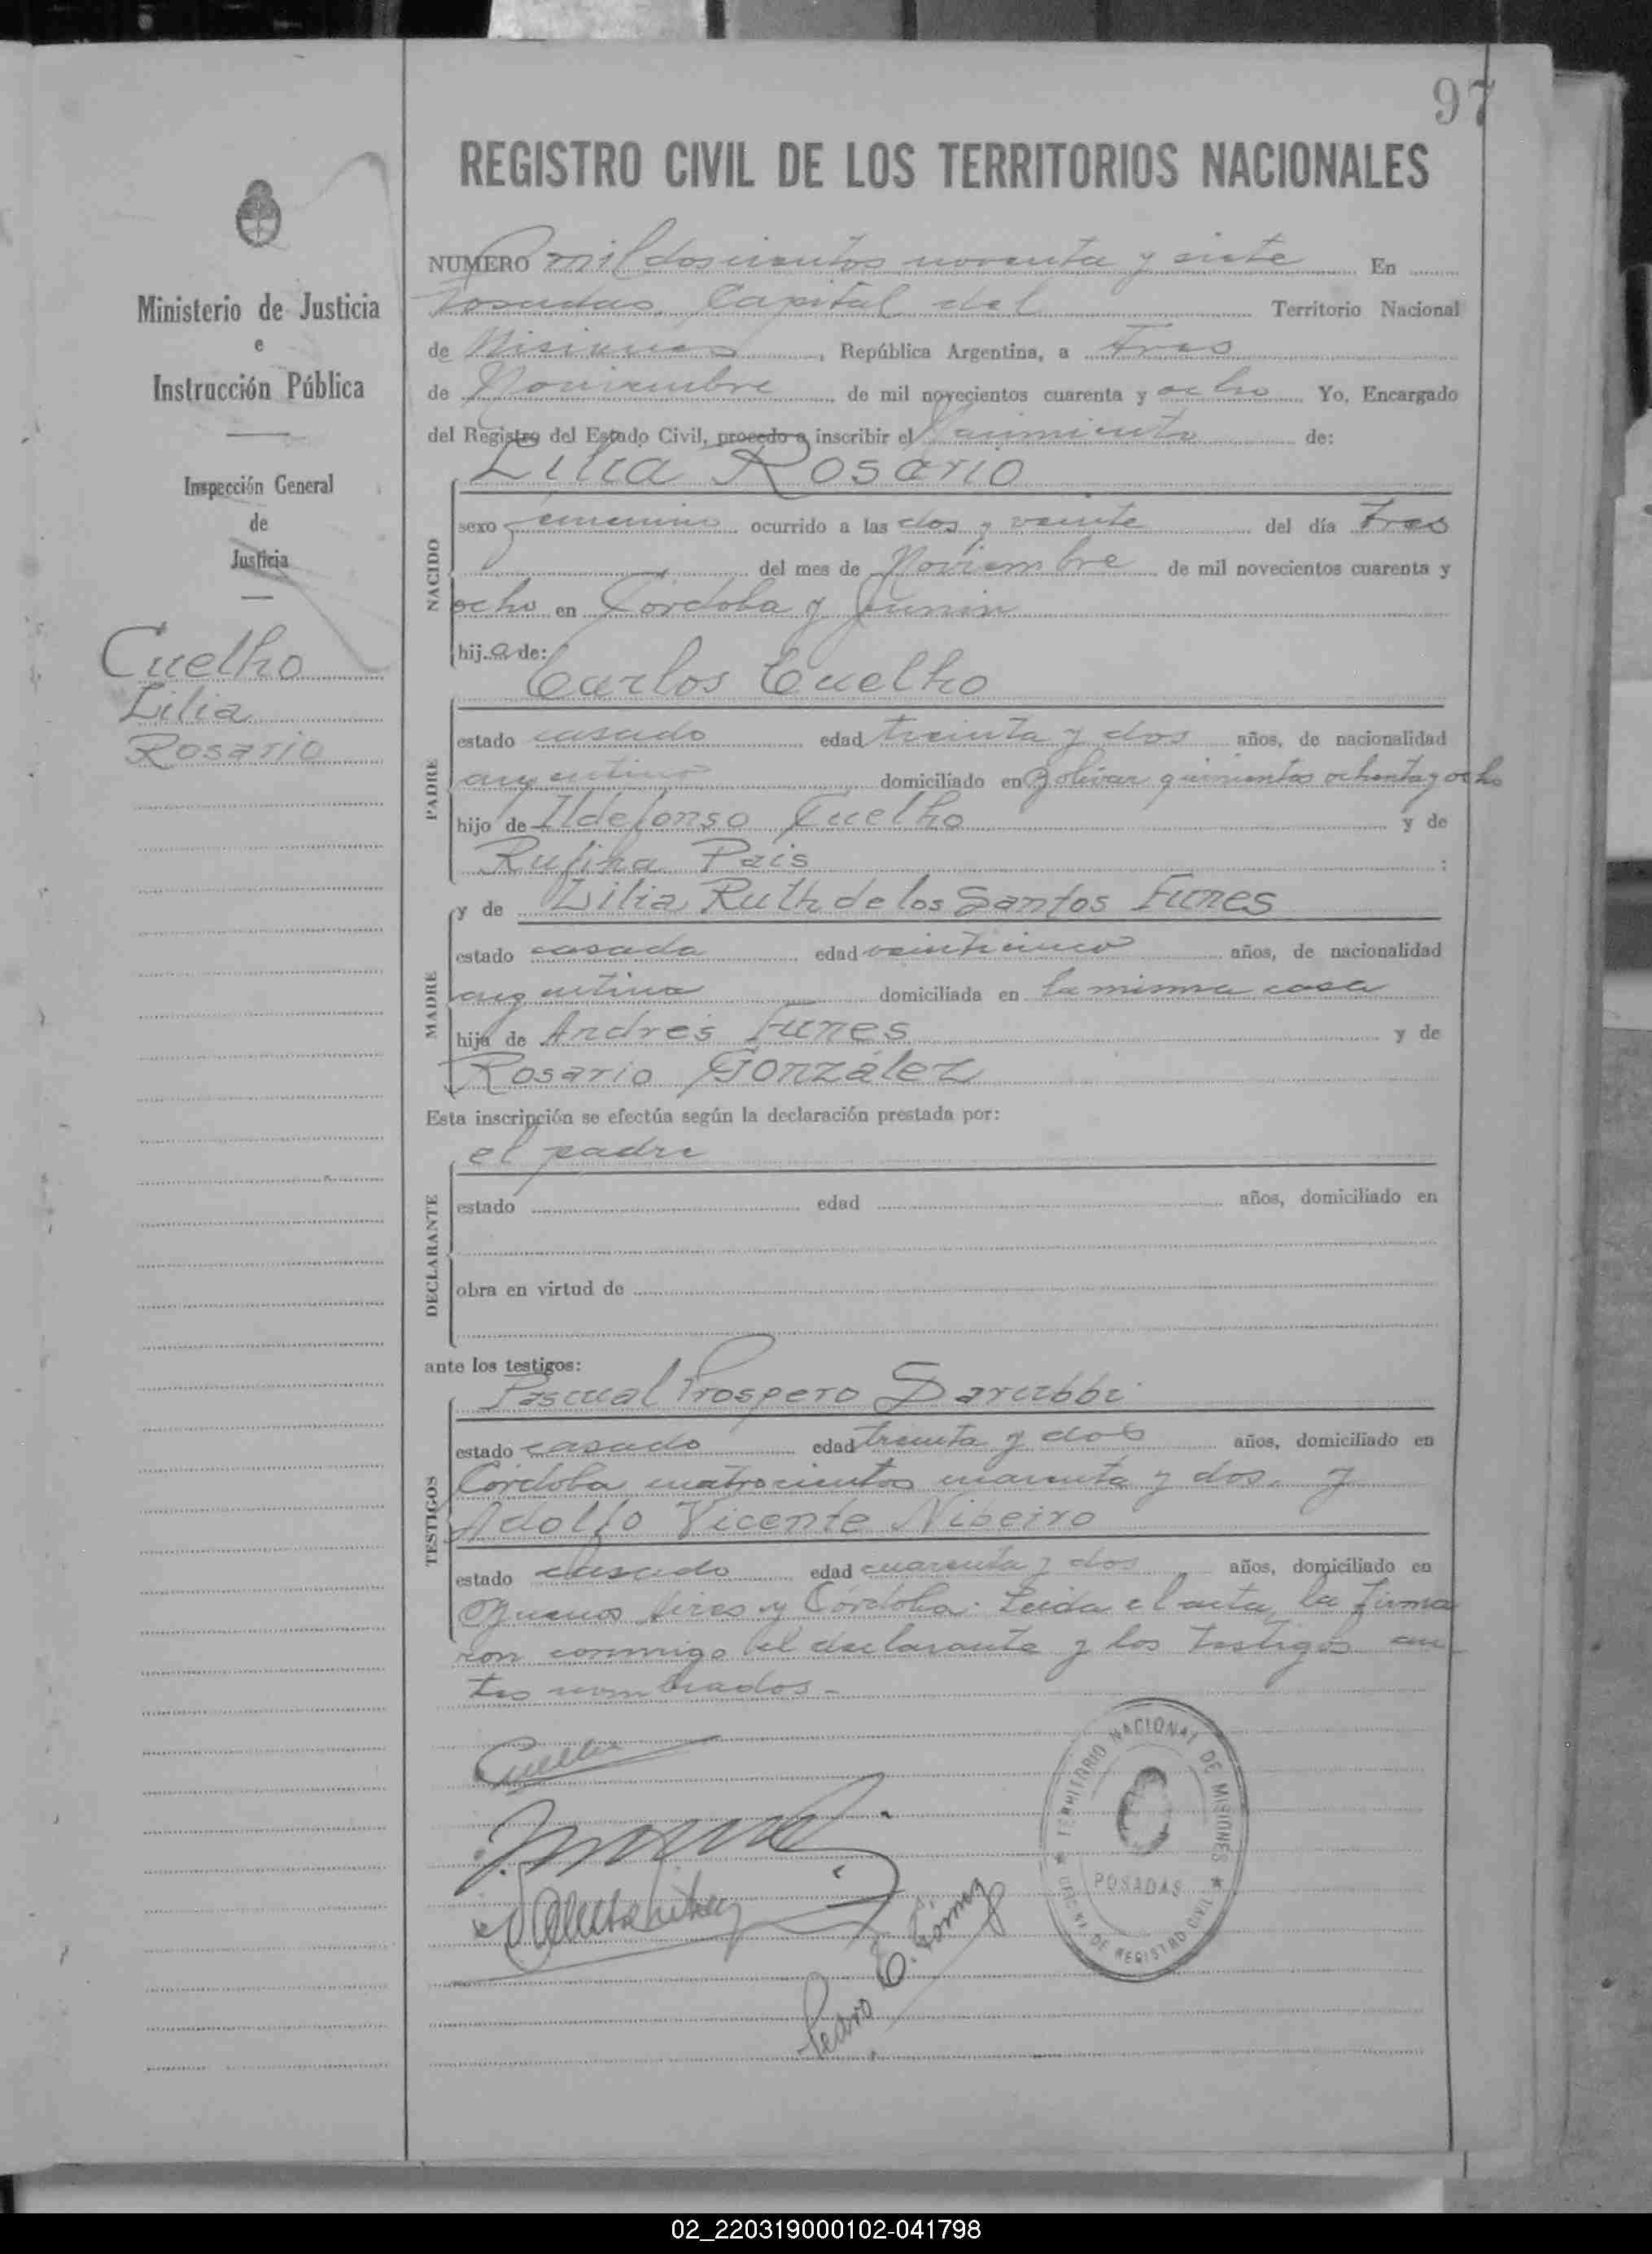 97
REGISTRO CIVIL DE LOS TERRITORIOS NACIONALES
Ministerio de Justicia
e
Instrucción Pública
Inspección General
de
Justicia
Cuelho
Lilia
Rosario
NUMERO mil doscientos noventa y siete En
Posadas, Capital del Territorio Nacional
de Misiones, República Argentina, a tres
de Noviembre de mil novecientos cuarenta y ocho Yo, Encargado
del Registro del Estado Civil, procedo a inscribir el Nacimiento de:
Lilia Rosario
NACIDO
sexo femenino ocurrido a las dos y veinte del día tres
del mes de Noviembre de mil novecientos cuarenta y
ocho en Córdoba y Junin
hija de:
Carlos Cuelho
PADRE
estado casado edad treinta y dos años, de nacionalidad
argentino domiciliado en Bolivar quinientos ochenta y ocho
hijo de Ildefonso Cuelho y de
Rufina Pais ;
y de Lilia Ruth de los Santos Funes
MADRE
estado casada edad veinticinco años, de nacionalidad
argentina domiciliada en la misma casa
hija de Andrés Funes y de
Rosario González
Esta inscripción se efectúa según la declaración prestada por:
el padre
DECLARANTE
estado edad años, domiciliado en
obra en virtud de
ante los testigos:
Pascual Prospero Darubbi
TESTIGOS
estado casado edad treinta y dos años, domiciliado en
Córdoba cuatrocientos cuarenta y dos. y
Adolfo Vicente Nibeiro
estado casado edad cuarenta y dos años, domiciliado en
Buenos Aires y Córdoba. Leida el acta, la firma
ron conmigo el declarante y los testigos an
tes nombrados.-
Cuelho
Pedro E. Gómez
TERRITORIO NACIONAL DE MISIONES
POSADAS
DE REGISTRO CIVIL
02_220319000102-041798